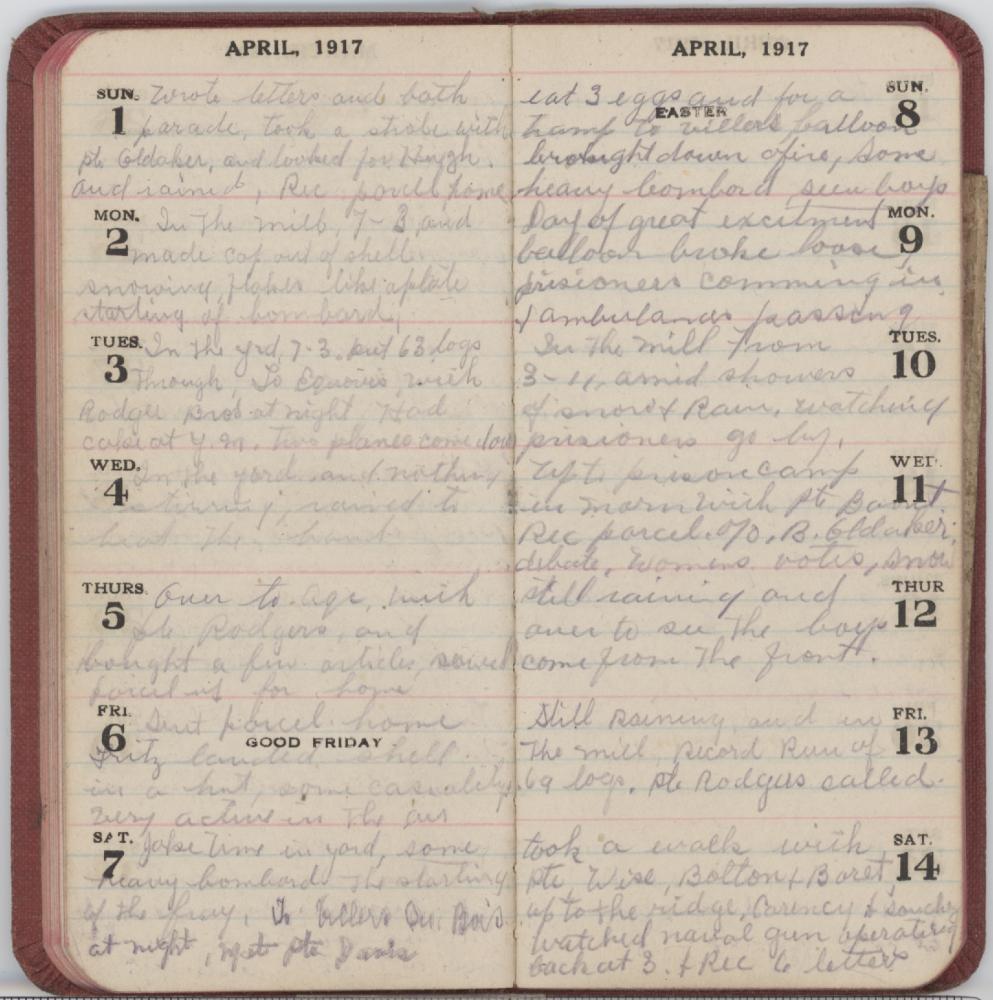 APRIL, 1917
SUN. 1 Wrote letters and bath
parade, took a strole with
Pte Oldaker, and looked for Hugh.
and rained, Rec parcell home
MON. 2 In the mill, 7-3 and
made cap out of shell.
snowing, flakes like a plate
starting of bombard,
TUES. 3 In the yrd, 7-3. put 63 logs
through, To Equoivis with
Rodger Bros at night Had
cake at Y.M. Two planes come dow
WED. 4 In the yard and nothing
stirring, rained to
beat the band
THURS. 5 Over to Age, with
Pte Rodgers, and
bought a few articles,
for home
FRI. 6 Sent parcel home
GOOD FRIDAY
Fritz landed shell
in a hut, some casuality
very active in the air
SAT. 7 Jake time in yard, some
heavy bombard the starting
of the fray, To Villers Du Bois
at night, met Pte Davis
APRIL, 1917
SUN. 8 eat 3 eggs and for a
EASTER
tramp to villers balloon
brought down afire, Some
heavy bombord seen boys
MON. 9 Day of great excitment
balloon broke loose,
prisioners comming in
& ambulances passing
TUES. 10 In the mill from
3-11, amid showers
of snow & Rain. watching
prisioners go by.
WED. 11 Up to prison camp
in morn with Pte
Rec parcel. o/o, B. Oldaker.
debate, Womens votes, snow
THUR 12 still raining and
over to see the boys
come from the front.
FRI. 13 Still Raining, and in
The mill, record Run of
69 logs. Pte Rodgers called.
SAT. 14 took a walk with
Pte, Wise, Bolton &
up to the ridge, Carency & souchez
watched naval gun operating
back at 3. & Rec 6 letters